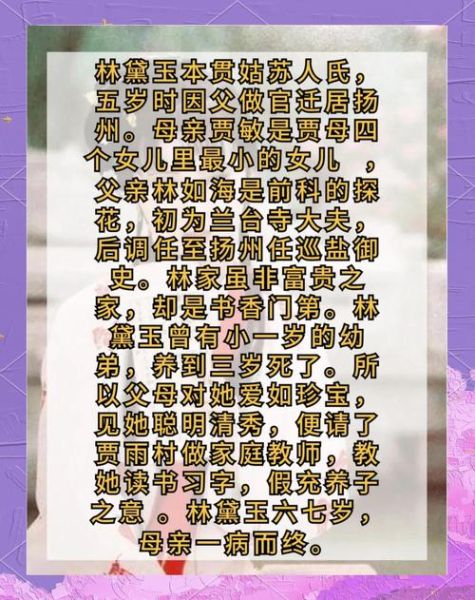 林黛玉本贯姑苏人氏，
五岁时因父做官迁居扬
州。母亲贾敏是贾母四
个女儿里最小的女儿 ，
父亲林如海是前科的探
花，初为兰台寺大夫，
后调任至扬州任巡盐御
史。林家虽非富贵之
家，却是书香门第。林
黛玉曾有小一岁的幼
弟，养到三岁死了。所
以父母对她爱如珍宝，
见她聪明清秀，便请了
贾雨村做家庭教师，教
她读书习字，假充养子
之意 。林黛玉六七岁，
母亲一病而终。